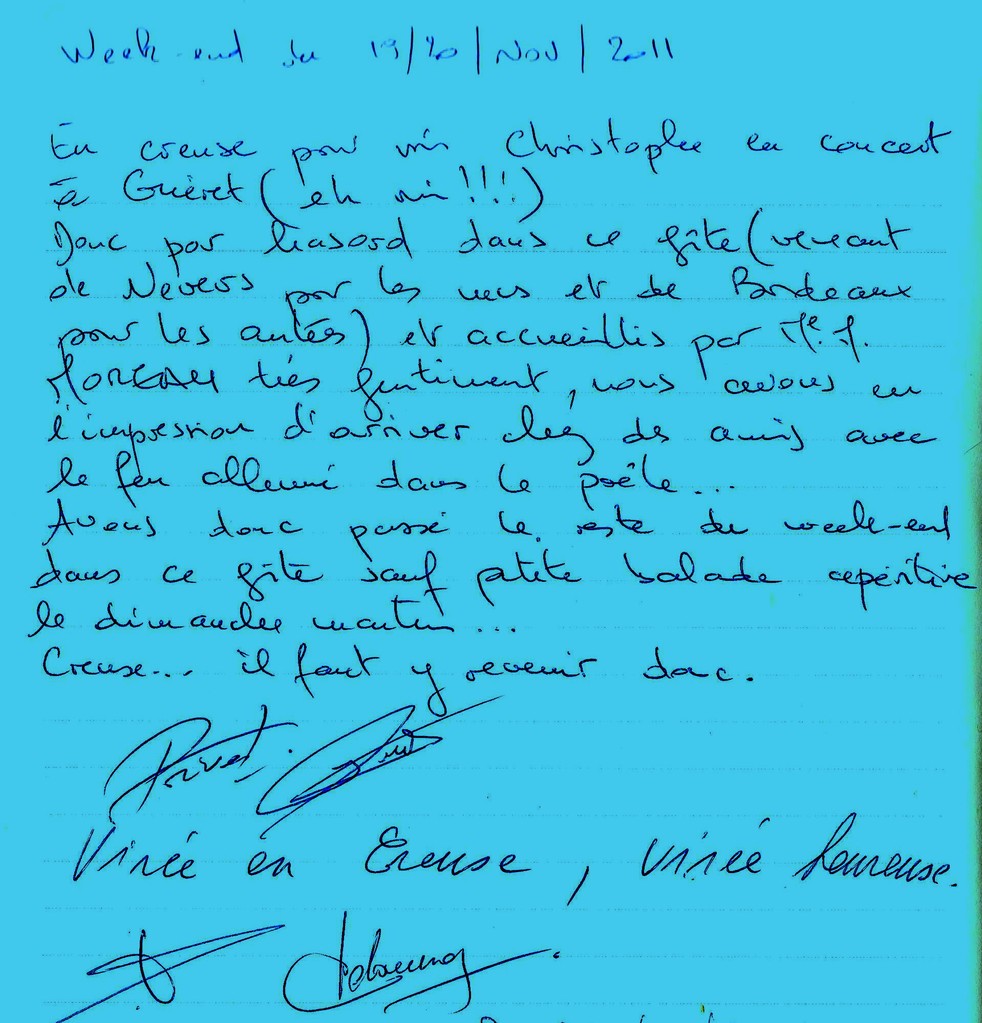 Week-end du 19/20/Nov/2011
En creuse pour voir Christophe en concert
à Guéret (eh oui!!!)
Donc par hasard dans ce gîte (venant
de Nevers por les uns et de Bordeaux
pour les autres) et accueillis par Me. J.
MOREAU très gentiment, nous avons eu
l'impression d'arriver chez des amis avec
le feu allumé dans le poêle...
Avons donc passé le reste du week-end
dans ce gîte sauf petite balade apéritive
le dimanche matin...
Creuse... il faut y revenir donc.
Privet.
Virée en Creuse, virée heureuse.